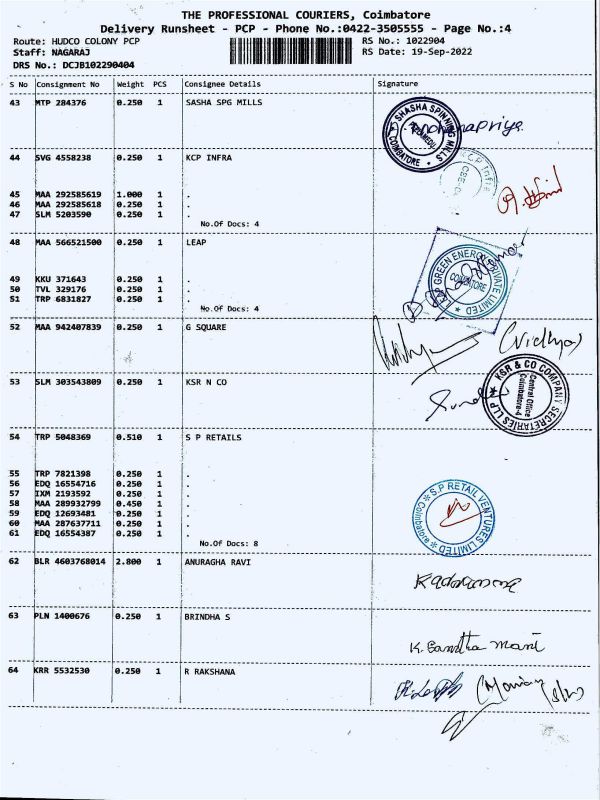 THE PROFESSIONAL COURIERS, Coimbatore
Delivery Runsheet - PCP - Phone No.:0422-3505555 - Page No.:4
Route: HUDCO COLONY PCP RS No.: 1022904
Staff: NAGARAJ RS Date: 19-Sep-2022
DRS No.: DCJB102290404
S No Consignment No Weight PCS Consignee Details Signature
43 MTP 284376 0.250 1 SASHA SPG MILLS
SHASHA SPINNING MILLS COIMBATORE
44 SVG 4558238 0.250 1 KCP INFRA
KCP Infra
45 MAA 292585619 1.000 1 .
46 MAA 292585618 0.250 1 .
47 SLM 5203590 0.250 1 .
No.Of Docs: 4
48 MAA 566521500 0.250 1 LEAP
LEAP GREEN ENERGY PRIVATE LIMITED COIMBATORE
49 KKU 371643 0.250 1 .
50 TVL 329176 0.250 1 .
51 TRP 6831827 0.250 1 .
No.Of Docs: 4
52 MAA 942407839 0.250 1 G SQUARE
(Vidhya)
53 SLM 303543809 0.250 1 KSR N CO
KSR & CO COMPANY SECRETARIES LLP Central Office Coimbatore-4
54 TRP 5048369 0.510 1 S P RETAILS
55 TRP 7821398 0.250 1 .
56 EDQ 16554716 0.250 1 .
57 IXM 2193592 0.250 1 .
58 MAA 289932799 0.450 1 .
59 EDQ 12693481 0.250 1 .
60 MAA 287637711 0.250 1 .
61 EDQ 16554387 0.250 1 .
S.P RETAIL VENTURES LIMITED Coimbatore
No.Of Docs: 8
62 BLR 4603768014 2.800 1 ANURAGHA RAVI
63 PLN 1400676 0.250 1 BRINDHA S
64 KRR 5532530 0.250 1 R RAKSHANA